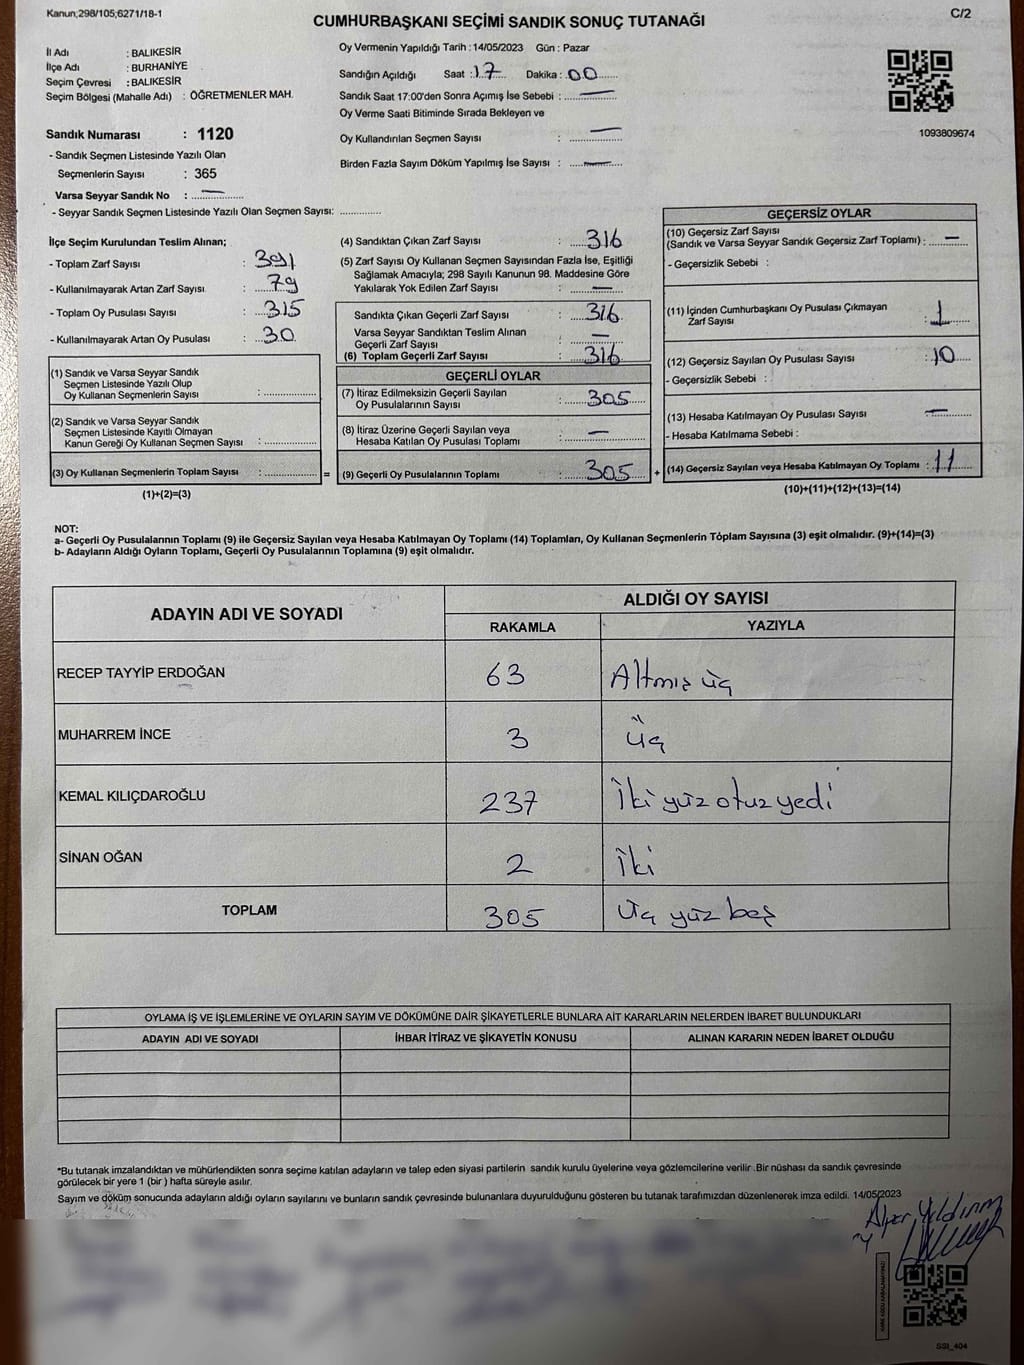 Kanun;298/105;6271/18-1
C/2
CUMHURBAŞKANI SEÇİMİ SANDIK SONUÇ TUTANAĞI
İl Adı : BALIKESİR
İlçe Adı : BURHANİYE
Seçim Çevresi : BALIKESİR
Seçim Bölgesi (Mahalle Adı) : ÖĞRETMENLER MAH.
Sandık Numarası : 1120
- Sandık Seçmen Listesinde Yazılı Olan
Seçmenlerin Sayısı : 365
Varsa Seyyar Sandık No : —
- Seyyar Sandık Seçmen Listesinde Yazılı Olan Seçmen Sayısı: ..............
Oy Vermenin Yapıldığı Tarih : 14/05/2023 Gün : Pazar
Sandığın Açıldığı Saat : 17 Dakika : 00
Sandık Saat 17:00'den Sonra Açımış İse Sebebi : —
Oy Verme Saati Bitiminde Sırada Bekleyen ve
Oy Kullandırılan Seçmen Sayısı : —
Birden Fazla Sayım Döküm Yapılmış İse Sayısı : —
1093809674
İlçe Seçim Kurulundan Teslim Alınan;
- Toplam Zarf Sayısı : 391
- Kullanılmayarak Artan Zarf Sayısı : 79
- Toplam Oy Pusulası Sayısı : 315
- Kullanılmayarak Artan Oy Pusulası : 30
(1) Sandık ve Varsa Seyyar Sandık
Seçmen Listesinde Yazılı Olup
Oy Kullanan Seçmenlerin Sayısı : ..............
(2) Sandık ve Varsa Seyyar Sandık
Seçmen Listesinde Kayıtlı Olmayan
Kanun Gereği Oy Kullanan Seçmen Sayısı : ..............
(3) Oy Kullanan Seçmenlerin Toplam Sayısı : ..............
(1)+(2)=(3)
(4) Sandıktan Çıkan Zarf Sayısı : 316
(5) Zarf Sayısı Oy Kullanan Seçmen Sayısından Fazla İse, Eşitliği
Sağlamak Amacıyla; 298 Sayılı Kanunun 98. Maddesine Göre
Yakılarak Yok Edilen Zarf Sayısı : —
Sandıkta Çıkan Geçerli Zarf Sayısı : 316
Varsa Seyyar Sandıktan Teslim Alınan
Geçerli Zarf Sayısı : —
(6) Toplam Geçerli Zarf Sayısı : 316
GEÇERLİ OYLAR
(7) İtiraz Edilmeksizin Geçerli Sayılan
Oy Pusulalarının Sayısı : 305
(8) İtiraz Üzerine Geçerli Sayılan veya
Hesaba Katılan Oy Pusulası Toplamı : —
= (9) Geçerli Oy Pusulalarının Toplamı : 305
GEÇERSİZ OYLAR
(10) Geçersiz Zarf Sayısı
(Sandık ve Varsa Seyyar Sandık Geçersiz Zarf Toplamı) : —
- Geçersizlik Sebebi :
(11) İçinden Cumhurbaşkanı Oy Pusulası Çıkmayan
Zarf Sayısı : 1
(12) Geçersiz Sayılan Oy Pusulası Sayısı : 10
- Geçersizlik Sebebi :
(13) Hesaba Katılmayan Oy Pusulası Sayısı : —
- Hesaba Katılmama Sebebi :
+ (14) Geçersiz Sayılan veya Hesaba Katılmayan Oy Toplamı : 11
(10)+(11)+(12)+(13)=(14)
NOT:
a- Geçerli Oy Pusulalarının Toplamı (9) ile Geçersiz Sayılan veya Hesaba Katılmayan Oy Toplamı (14) Toplamları, Oy Kullanan Seçmenlerin Toplam Sayısına (3) eşit olmalıdır. (9)+(14)=(3)
b- Adayların Aldığı Oyların Toplamı, Geçerli Oy Pusulalarının Toplamına (9) eşit olmalıdır.
ADAYIN ADI VE SOYADI
ALDIĞI OY SAYISI
RAKAMLA YAZIYLA
RECEP TAYYİP ERDOĞAN 63 Altmış üç
MUHARREM İNCE 3 üç
KEMAL KILIÇDAROĞLU 237 İki yüz otuz yedi
SİNAN OĞAN 2 İki
TOPLAM 305 üç yüz beş
OYLAMA İŞ VE İŞLEMLERİNE VE OYLARIN SAYIM VE DÖKÜMÜNE DAİR ŞİKAYETLERLE BUNLARA AİT KARARLARIN NELERDEN İBARET BULUNDUKLARI
ADAYIN ADI VE SOYADI İHBAR İTİRAZ VE ŞİKAYETİN KONUSU ALINAN KARARIN NEDEN İBARET OLDUĞU
*Bu tutanak imzalandıktan ve mühürlendikten sonra seçime katılan adayların ve talep eden siyasi partilerin sandık kurulu üyelerine veya gözlemcilerine verilir. Bir nüshası da sandık çevresinde
görülecek bir yere 1 (bir) hafta süreyle asılır.
Sayım ve döküm sonucunda adayların aldığı oyların sayılarını ve bunların sandık çevresinde bulunanlara duyurulduğunu gösteren bu tutanak tarafımızdan düzenlenerek imza edildi. 14/05/2023
Alper Yıldırım
SSI_404